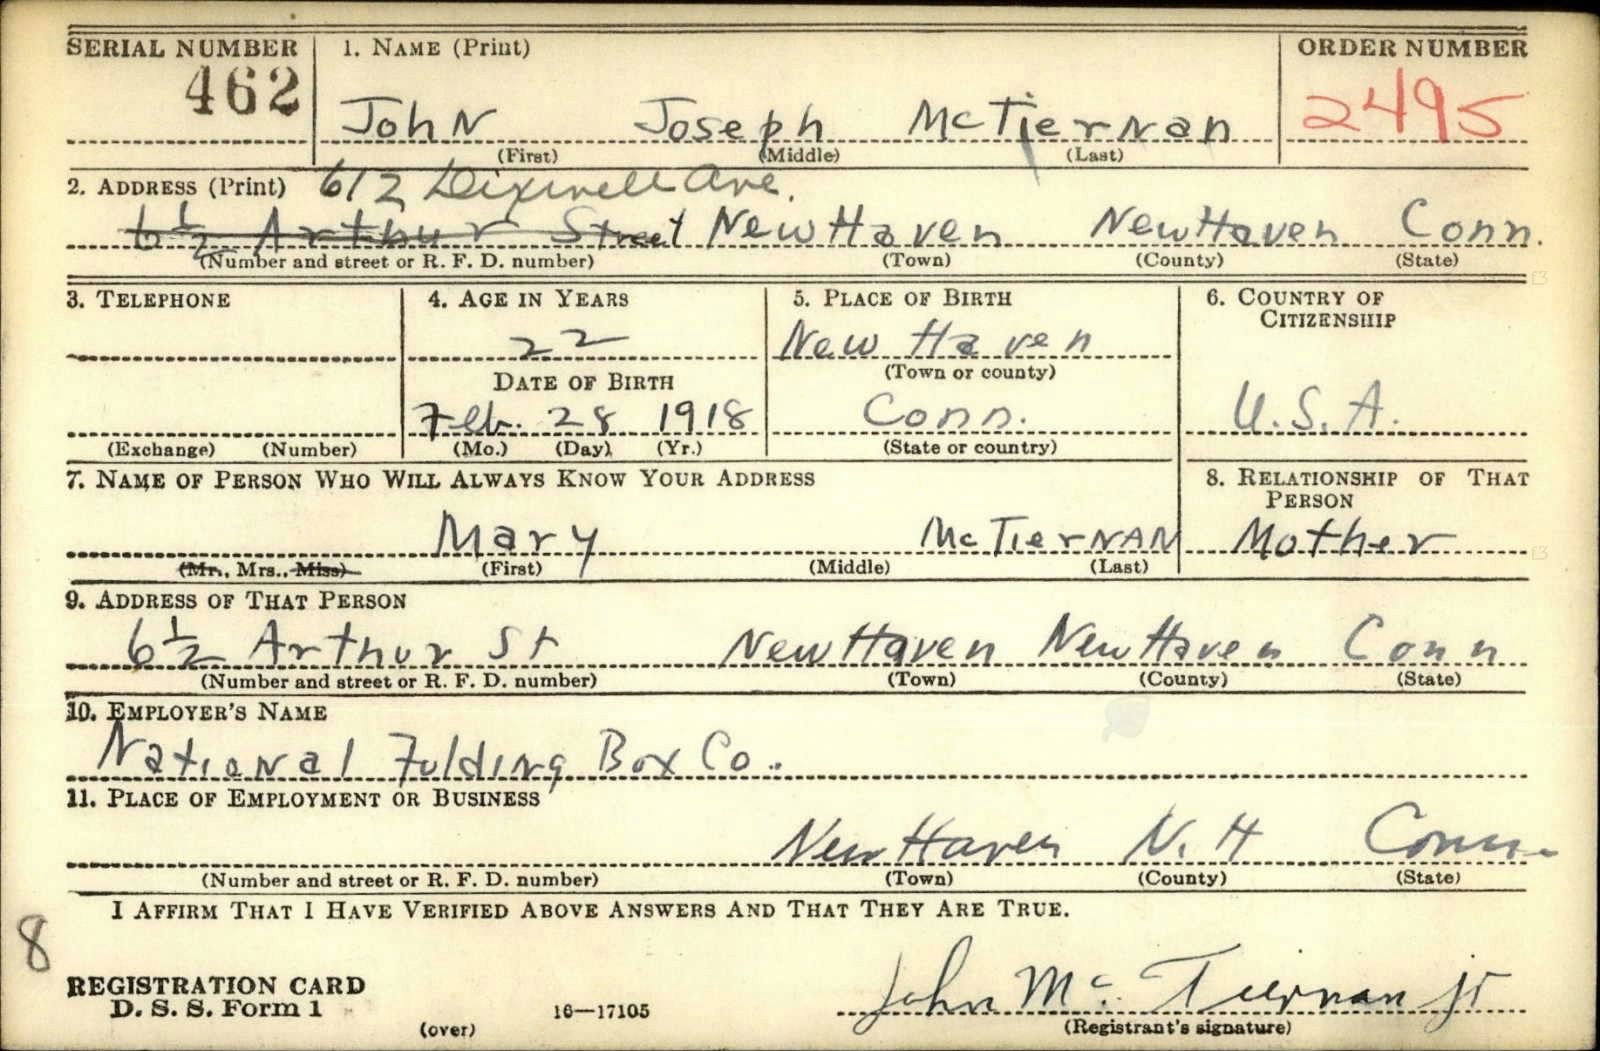 SERIAL NUMBER 1. NAME (Print) ORDER NUMBER
462 John Joseph McTiernan 2495
(First) (Middle) (Last)
2. ADDRESS (Print) 612 Dixwell Ave.
6 1/2 Arthur Street New Haven New Haven Conn.
(Number and street or R. F. D. number) (Town) (County) (State)
3. TELEPHONE 4. AGE IN YEARS 5. PLACE OF BIRTH 6. COUNTRY OF
CITIZENSHIP
22 New Haven
DATE OF BIRTH (Town or county)
Feb. 28 1918 Conn. U.S.A.
(Exchange) (Number) (Mo.) (Day) (Yr.) (State or country)
7. NAME OF PERSON WHO WILL ALWAYS KNOW YOUR ADDRESS 8. RELATIONSHIP OF THAT
PERSON
Mary McTiernan Mother
(Mr., Mrs., Miss) (First) (Middle) (Last)
9. ADDRESS OF THAT PERSON
6 1/2 Arthur St New Haven New Haven Conn
(Number and street or R. F. D. number) (Town) (County) (State)
10. EMPLOYER'S NAME
National Folding Box Co.
11. PLACE OF EMPLOYMENT OR BUSINESS
New Haven N.H Conn.
(Number and street or R. F. D. number) (Town) (County) (State)
I AFFIRM THAT I HAVE VERIFIED ABOVE ANSWERS AND THAT THEY ARE TRUE.
8
REGISTRATION CARD
D. S. S. Form 1 16—17105 John McTiernan jr
(over) (Registrant's signature)